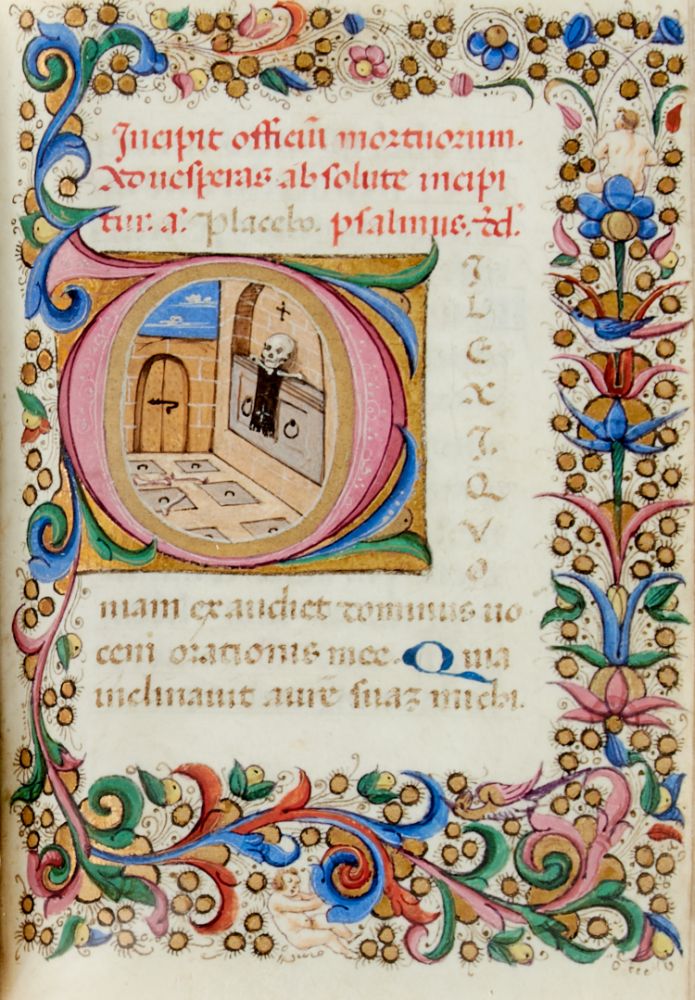 Incipit officiū mortuorum.
Ad uesperas absolute incipi
tur. a. Placebo. psalmus. dd.
DILEXI.QVO
niam exaudiet dominus uo
cem orationis mee. Quia
inclinauit aurē suaz michi.